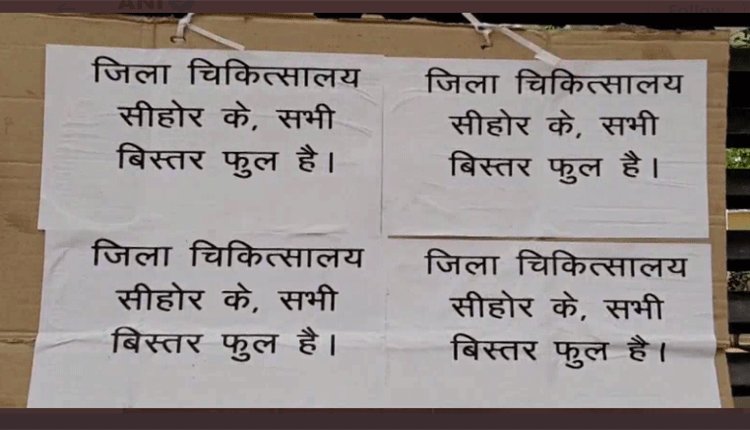 ANI
Follow
जिला चिकित्सालय
सीहोर के, सभी
बिस्तर फुल है।
जिला चिकित्सालय
सीहोर के, सभी
बिस्तर फुल है।
जिला चिकित्सालय
सीहोर के, सभी
बिस्तर फुल है।
जिला चिकित्सालय
सीहोर के, सभी
बिस्तर फुल है।